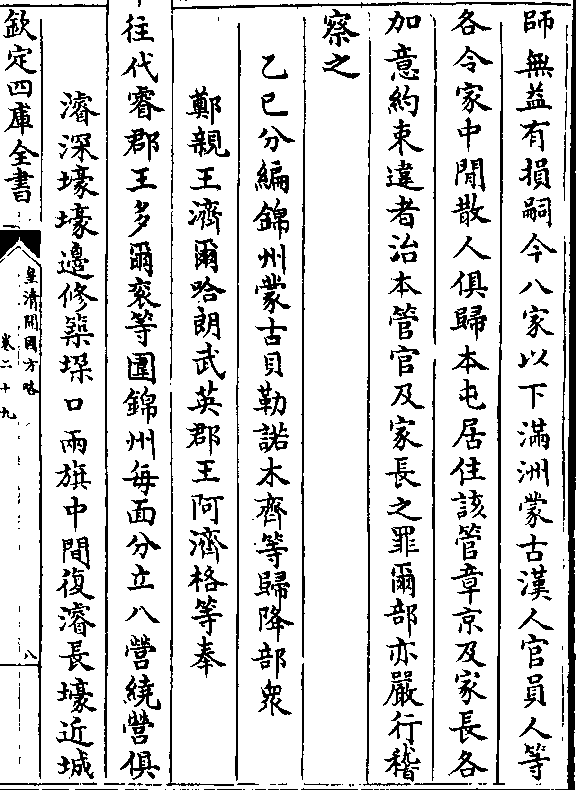 師無益有損嗣今八家以下滿洲蒙古漢人官員人等
各令家中閒散人俱歸本屯居住該管章京及家長各
加意約束違者治本管官及家長之罪爾部亦嚴行稽
察之
乙巳分編錦州蒙古貝勒諾木齊等歸降部衆
鄭親王濟爾哈朗武英郡王阿濟格等奉
往代睿郡王多爾袞等圍錦州每面分立八營繞營俱
濬深壕壕邊修築垜口兩旗中間復濬長壕近城
欽定四庫全書
皇清開國方略
卷二十九
八